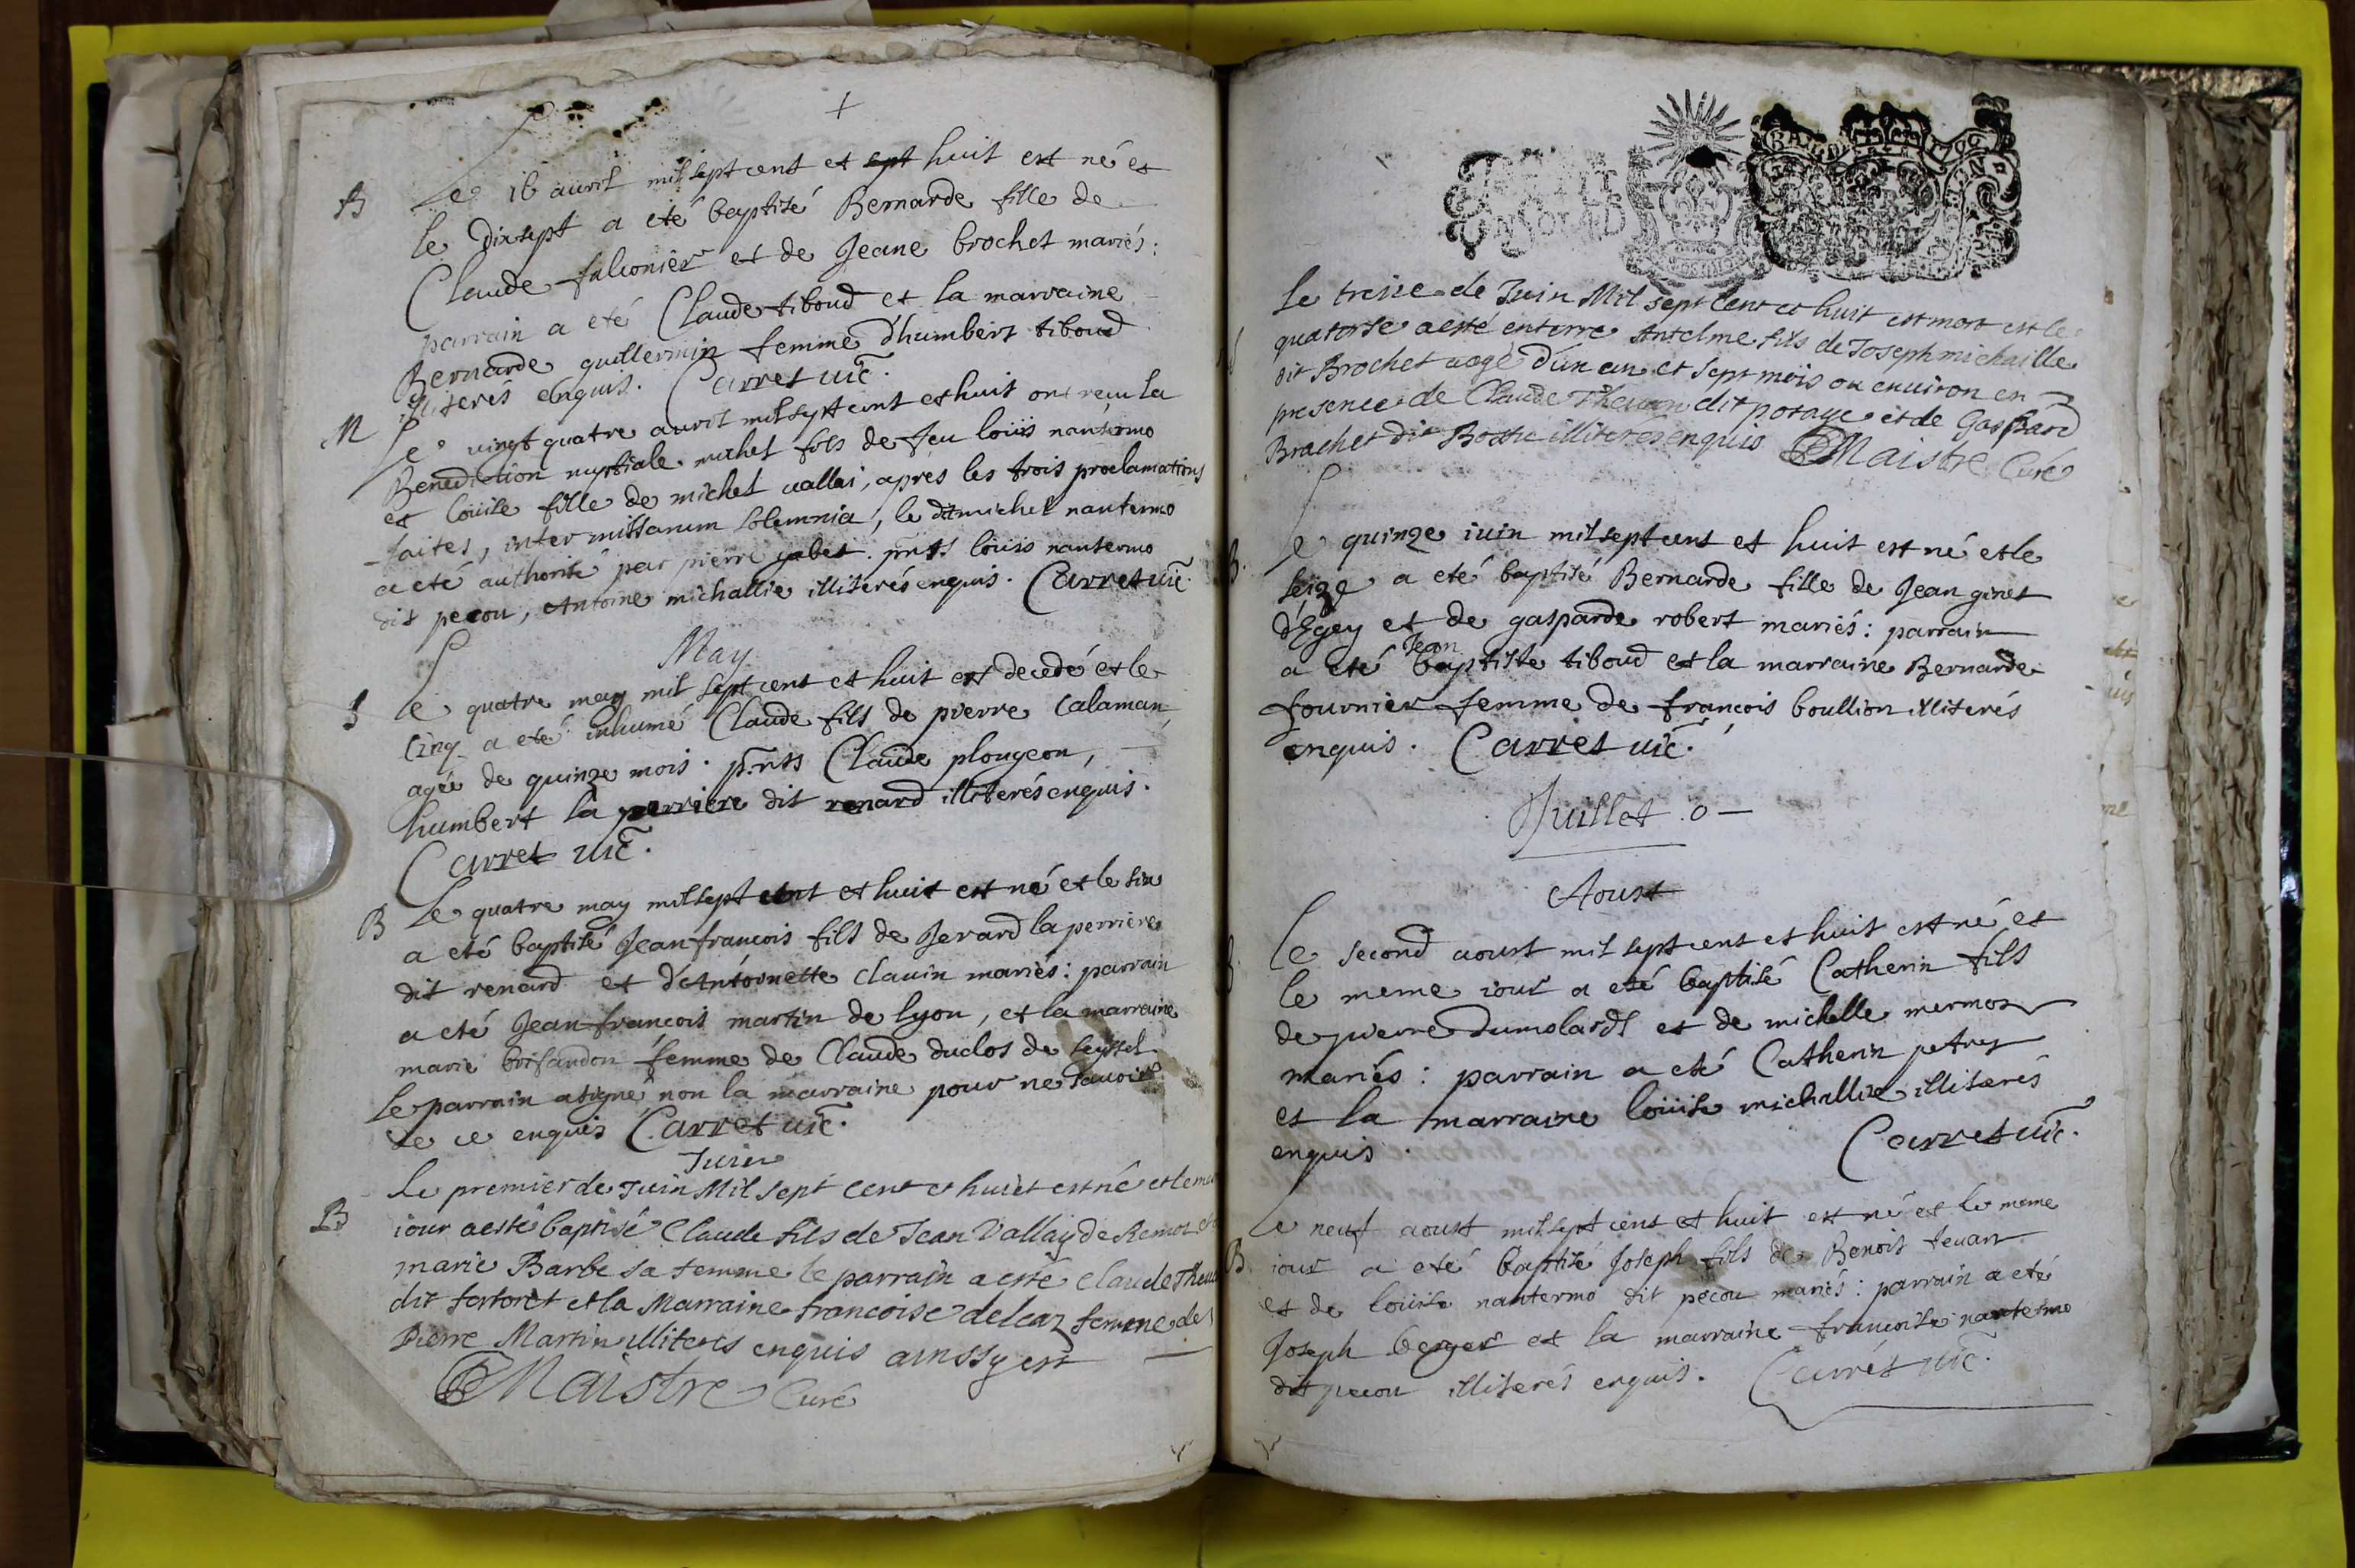 B Le 16 auvril mil sept cens et sept huit est né et
le dixsept a eté baptisé Bernarde fille de
Claude falconier et de Jeane brochet mariés :
parrain a eté Claude tiboud et la marraine
Bernarde guillermin femme d'humbert tiboud
illiterés enquis. Carret uic.
M Le vingt quatre auvril mil sept cens et huit ont receu la
Benediction nuptiale michel fils de feu loüis nantermo
et loüise fille de michel vallai, après les trois proclamations
faites, inter missarum solemnia, le dit michel nantermo
a eté authorisé par pierre gabet. pnts loüis nantermo
dit pecou, Antoine michallie illiterés enquis. Carret uic.
May
S Le quatre may mil sept cens et huit est decedé et le
cinq a eté inhumé Claude fils de pierre Calaman
agée de quinze mois. pnts Claude plougeon,
humbert la perriere dit renard illiterés enquis.
Carret uic.
B Le quatre may mil sept cent et huit est né et le six
a eté baptisé Jean francois fils de Jerard la perriere
dit renard et d'Antoinette clauin mariés : parrain
a eté Jean francois martin de lyon, et la marraine
marie brisandon femme de Claude duclos de seissel
le parrain a signé non la marraine pour ne sauoir
de ce enquis Carret uic.
Juin
B Le premier de Juin Mil sept cent et huict est né et le
iour a esté baptisé Claude fils de Jean Vallay de Remoz
marie Barbe sa femme le parrain a esté Claude
dit fortoret et la Marraine francoise deleaz femme de
Pierre Martin illiteres enquis ainssy est
Maistre Curé
Le treize de Juin Mil sept Cent et huit est mort et le
quatorse a esté enterre Antelme fils de Joseph michaille
dit Brochet aagé d'un an et sept mois ou enuiron en
presence de Claude Theuan dit potaye et de Gaspard
Brachet dit Bottu illiteres enquis Maistre Curé
B. Le quinze iuin mil sept cens et huit est né et le
seize a eté baptisé Bernarde fille de Jean ginet
d'Egey et de gasparde robert mariés : parrain
Jean
a eté baptiste tiboud et la marraine Bernarde
fournier femme de francois boullion illiterés
enquis. Carret uic.
Juillet . 0 —
Aoust
Le second aoust mil sept cens et huit est né et
le meme iour a eté baptisé Catherin fils
de pierre dumolard et de michelle mermoz
mariés : parrain a eté Catherin petrey
et la marraine loüise michallie illiterés
enquis. Carret uic.
B Le neuf aoust mil sept cens et huit est né et le meme
iour a eté baptisé Joseph fils de Benoit teuan
et de loüise nantermo dit pecou mariés : parrain a eté
Joseph berger et la marraine francoise nantermo
dit pecou illiterés enquis. Carret uic.